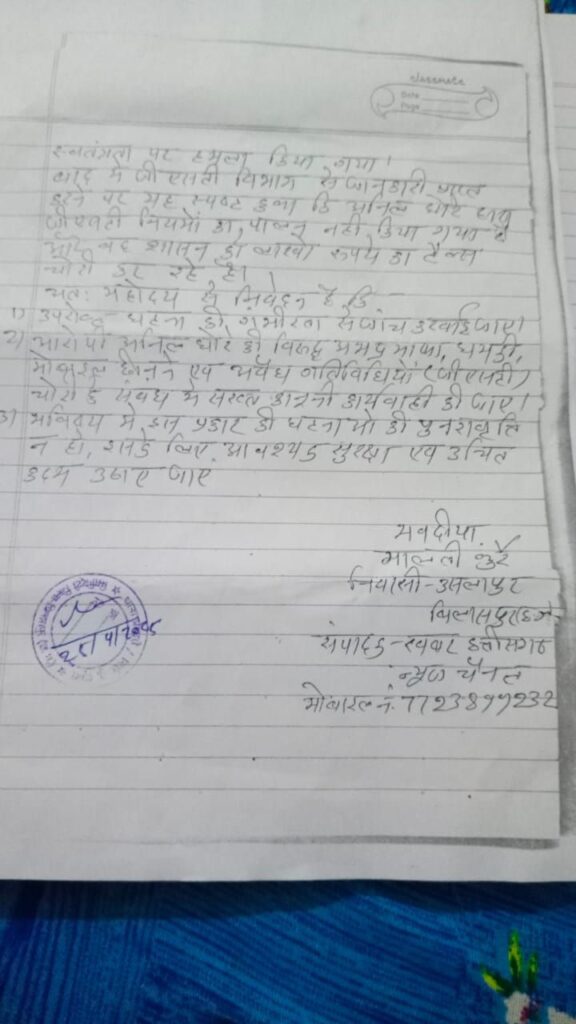 Classmate
Date
Page
स्वतंत्रता पर हमला किया गया।
बाद में जीएसटी विभाग से जानकारी प्राप्त
करने पर यह स्पष्ट हुआ कि अनिल धोरे द्वारा
जीएसटी नियमों का पालन नहीं किया गया है
और वह शासन का लाखो रूपये का टैक्स
चोरी कर रहे है।
अतः महोदय से निवेदन है कि
1) उपरोक्त घटना की गंभीरता से जांच करवाई जाए।
2) आरोपी अनिल धोरे के विरुद्ध अभद्र भाषा, धमकी,
मोबाइल छीनने एवं अवैध गतिविधियों (जीएसटी)
चोरी के संबंध में सख्त कानूनी कार्यवाही की जाए।
3) भविष्य मे इस प्रकार की घटनाओ की पुनरावृत्ति
न हो, इसके लिए आवश्यक सुरक्षा एवं उचित
कदम उठाए जाए
भवदीया
मालती कुर्रे
निवासी-उसलापुर
बिलासपुर
संपादक-खबर छत्तीसगढ
न्यूज चैनल
मोबाइल नं. 7723899232